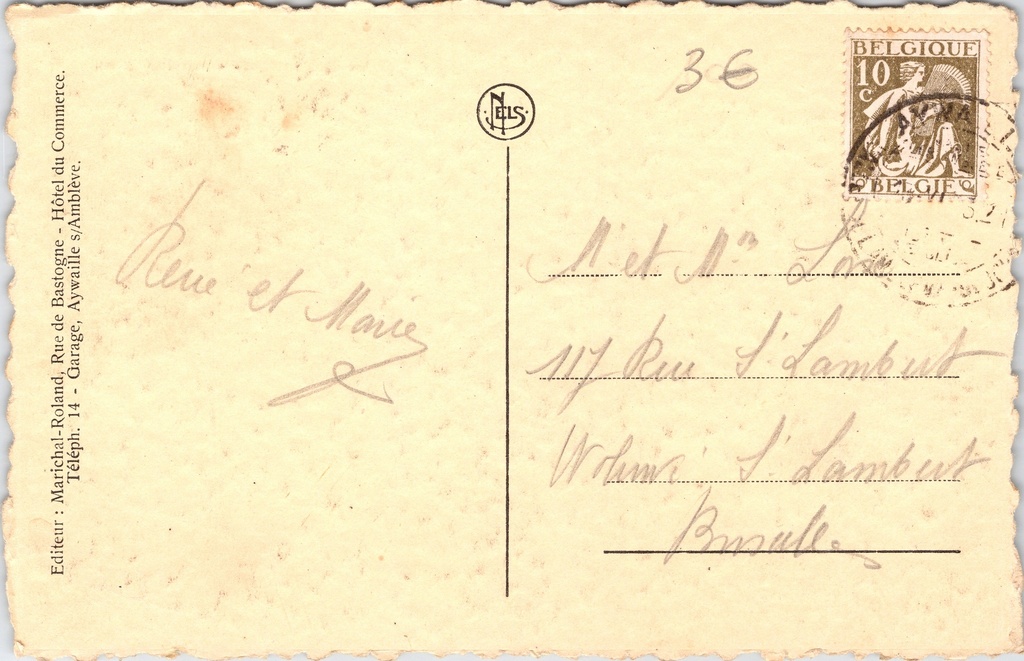 Editeur : Marichal-Roland, Rue de Bastogne - Hôtel du Commerce.
Téléph. 14 - Garage, Aywaille s/Amblève.
René et Marie
NELS
3€
BELGIQUE
10
C
BELGIË
AYWA
Mr et Mme
117 Rue St Lambert
Woluwe St Lambert
Bruxelles